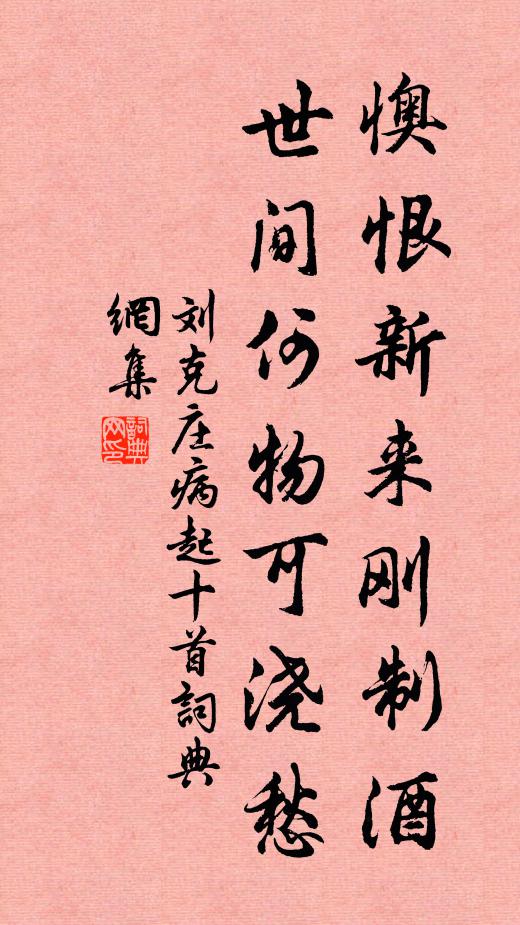 懊恨新来刚制酒
世间何物可浇愁
刘克庄病起十首詞典
網集
詞典网印